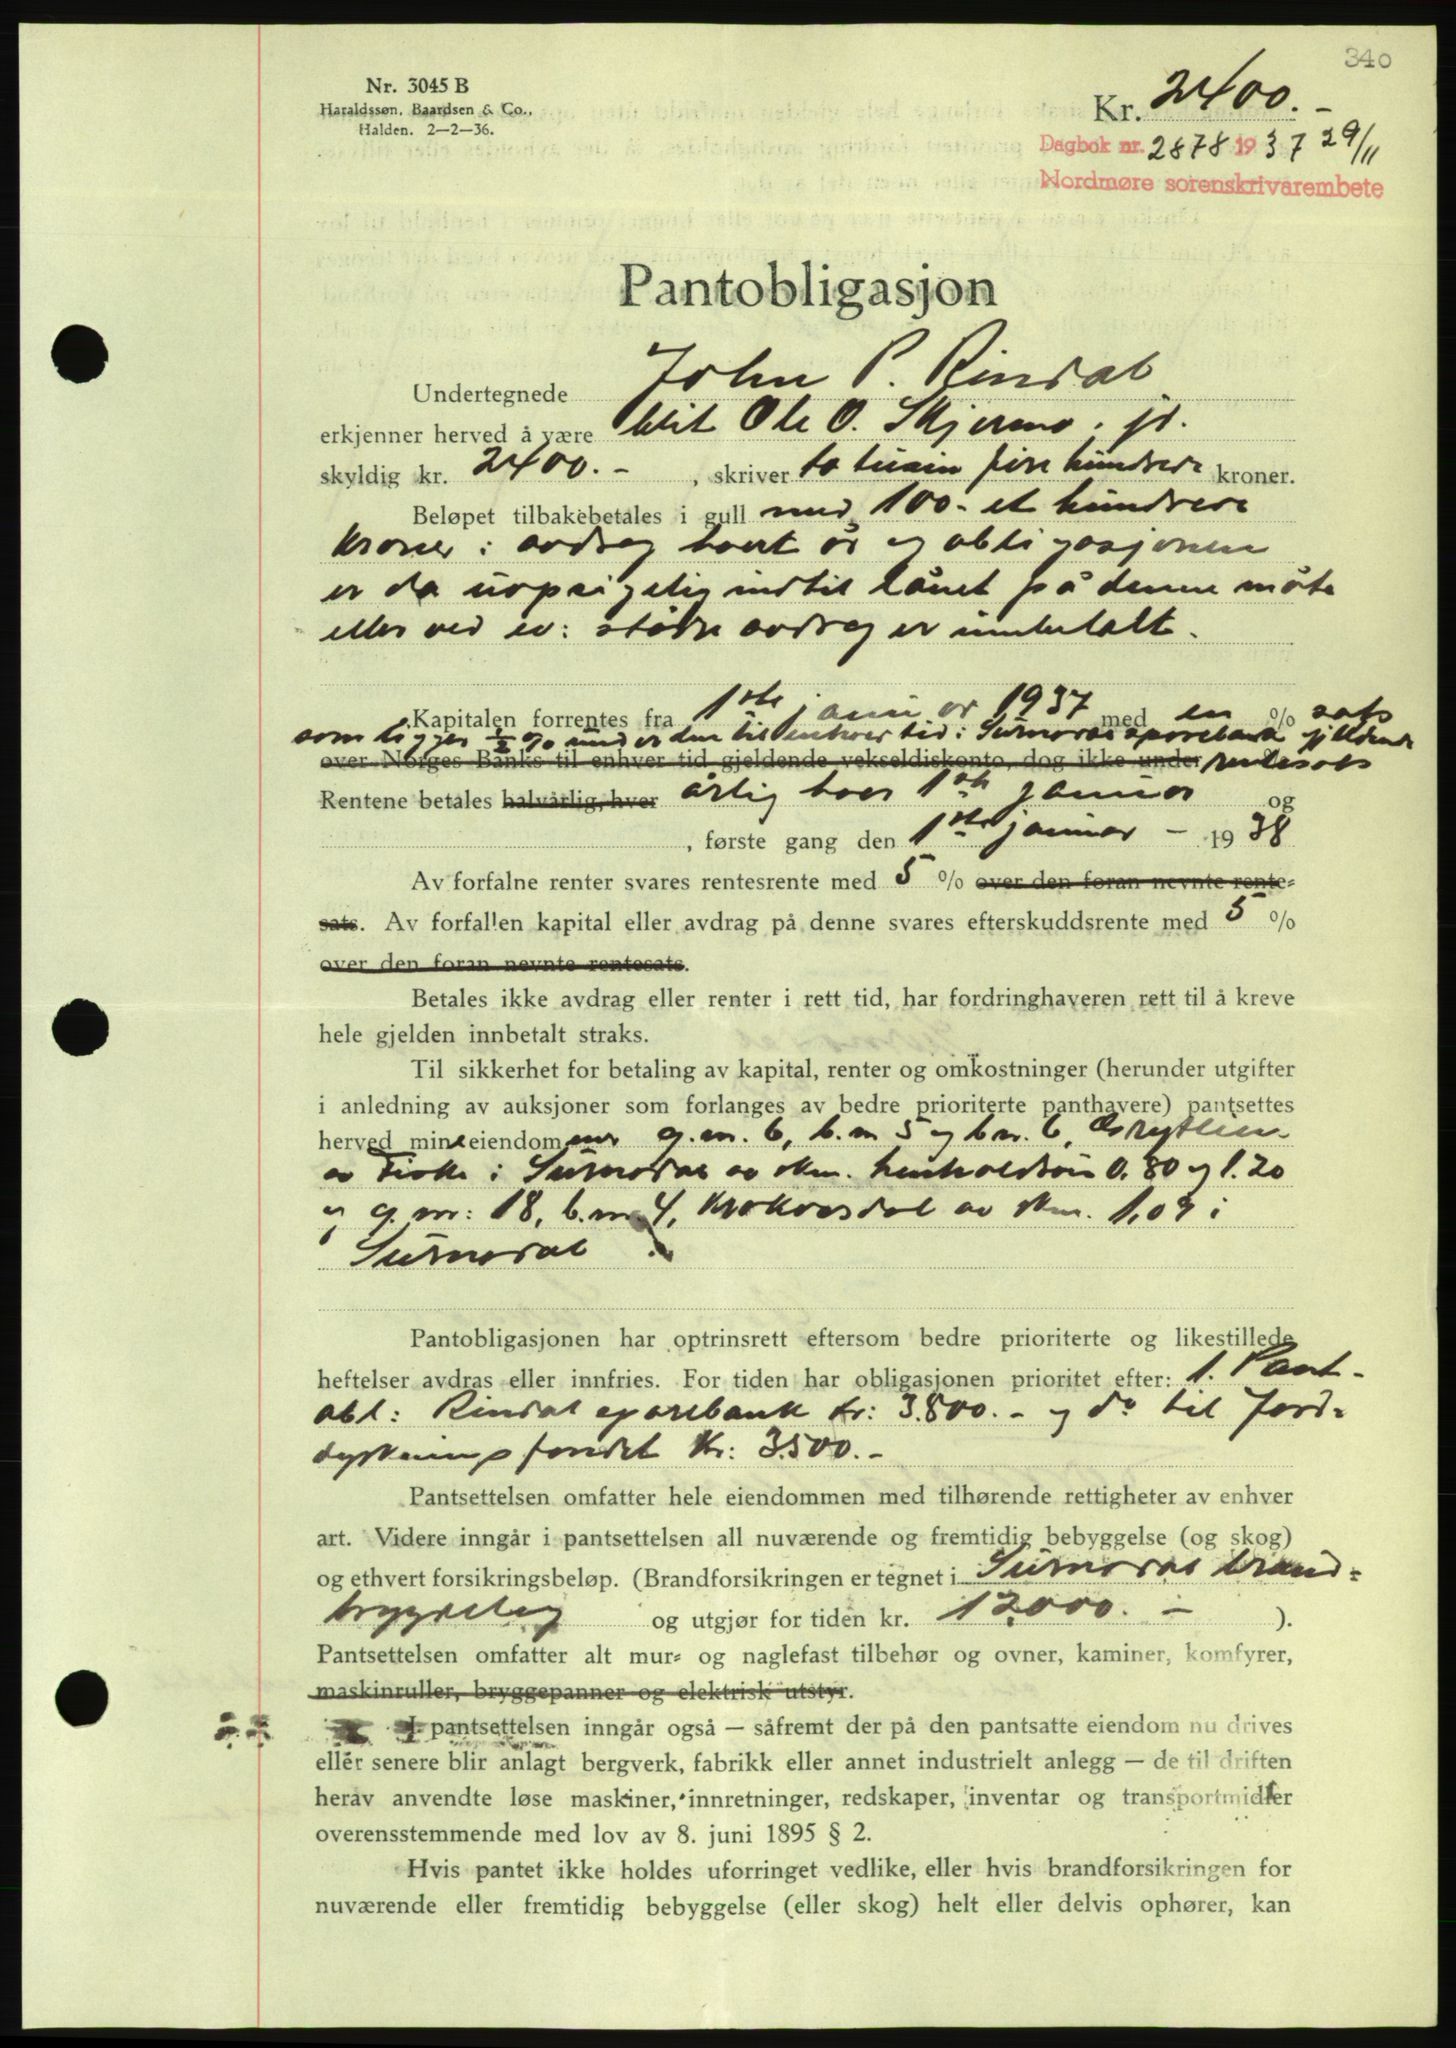 340
Nr. 3045 B
Haraldssøn, Baardsen & Co.,
Halden. 2—2—36.
Kr. 2400.-
Dagbok nr. 2878 1937 29/11
Nordmøre sorenskrivarembete
Pantobligasjon
Undertegnede John P. Rindal
erkjenner herved å være blit Ole O. Skjermo, jr.
skyldig kr. 2400.-, skriver to tusin fire hundrede kroner.
Beløpet tilbakebetales i gull med 100.- et hundrede
kroner i avdrag hvert år og obligasjonen
er da uopsigelig indtil lånet på denne måte
eller ved ev: større avdrag er innbetalt.
Kapitalen forrentes fra 1ste januar 1937 med en % sats
som ligger ½ % under den til enhver tid i Surnadal sparebank gjeldende
over Norges Banks til enhver tid gjeldende vekseldiskonto, dog ikke under rentesats
Rentene betales halvårlig, hver årlig hver 1ste januar og
, første gang den 1ste januar - 1938
Av forfalne renter svares rentesrente med 5 % over den foran nevnte rente-
sats. Av forfallen kapital eller avdrag på denne svares efterskuddsrente med 5 %
over den foran nevnte rentesats.
Betales ikke avdrag eller renter i rett tid, har fordringhaveren rett til å kreve
hele gjelden innbetalt straks.
Til sikkerhet for betaling av kapital, renter og omkostninger (herunder utgifter
i anledning av auksjoner som forlanges av bedre prioriterte panthavere) pantsettes
herved mine eiendommer g.nr. 6, b.nr 5 og b.nr. 6,
av Fiske i Surnadal av skm. henholdsvis 0.80 og 1.20
og g.nr: 18, b.nr 4, Krokvasdal av skm. 1,09 i
Surnadal
Pantobligasjonen har optrinsrett eftersom bedre prioriterte og likestillede
heftelser avdras eller innfries. For tiden har obligasjonen prioritet efter: 1. Pant-
obl: Rindal sparebank kr: 3.800.- og do til Jord-
dyrkningsfondet kr: 3.500.-
Pantsettelsen omfatter hele eiendommen med tilhørende rettigheter av enhver
art. Videre inngår i pantsettelsen all nuværende og fremtidig bebyggelse (og skog)
og ethvert forsikringsbeløp. (Brandforsikringen er tegnet i Surnadal brand-
trygdelag og utgjør for tiden kr. 12.000.- ).
Pantsettelsen omfatter alt mur- og naglefast tilbehør og ovner, kaminer, komfyrer,
maskinruller, bryggepanner og elektrisk utstyr.
I pantsettelsen inngår også — såfremt der på den pantsatte eiendom nu drives
eller senere blir anlagt bergverk, fabrikk eller annet industrielt anlegg — de til driften
herav anvendte løse maskiner, innretninger, redskaper, inventar og transportmidler
overensstemmende med lov av 8. juni 1895 § 2.
Hvis pantet ikke holdes uforringet vedlike, eller hvis brandforsikringen for
nuværende eller fremtidig bebyggelse (eller skog) helt eller delvis ophører, kan